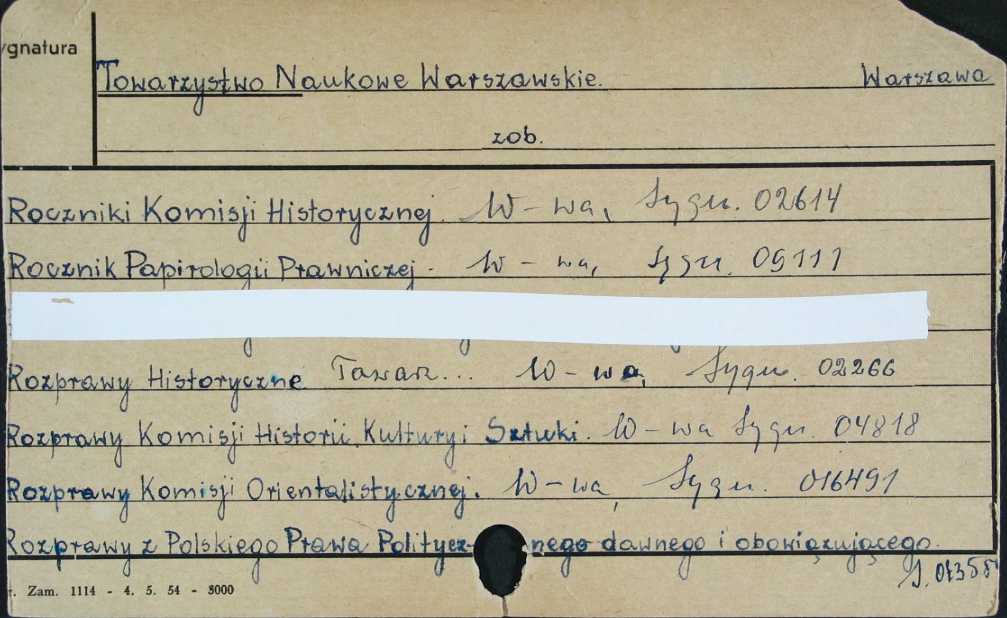 ygnatura
Towarzystwo Naukowe Warszawskie. Warszawa
zob.
Roczniki Komisji Historycznej. W-wa, Sygn. 02614
Rocznik Papirologii Prawniczej. W-wa, Sygn. 09111
Rozprawy Historyczne Towarz... W-wa, Sygn. 02266
Rozprawy Komisji Historii, Kultury i Sztuki. W-wa Sygn. 04818
Rozprawy Komisji Orientalistycznej. W-wa, Sygn. 016491
Rozprawy z Polskiego Prawa Politycz- nego dawnego i obowiązującego.
t. Zam. 1114 - 4. 5. 54 - 3000